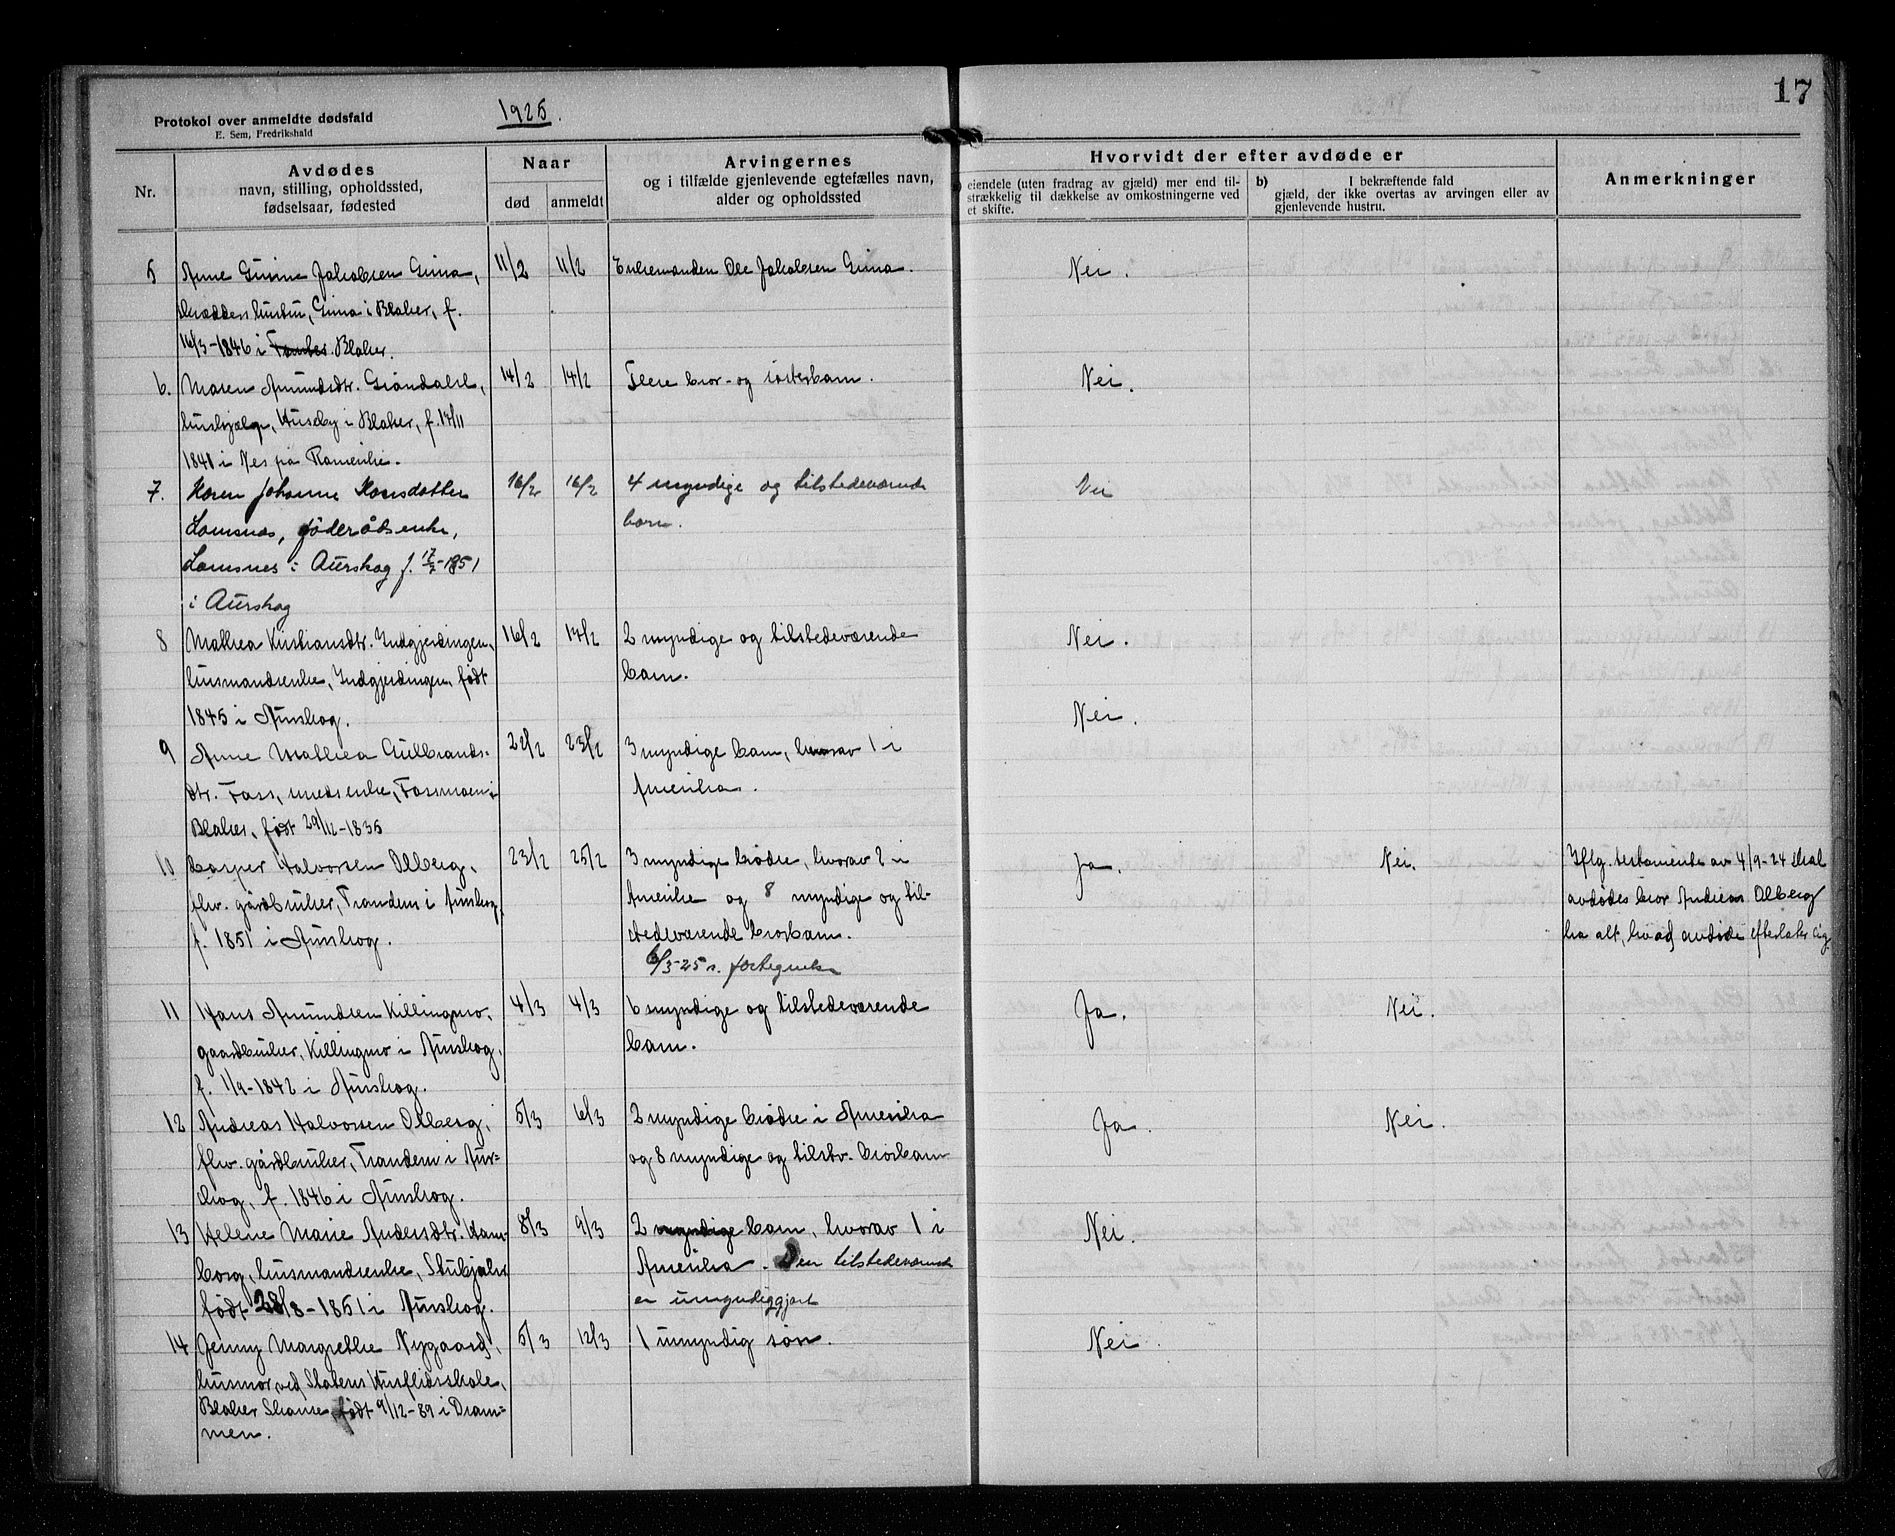 17
1925.
Protokol over anmeldte dødsfald
E. Sem, Fredrikshald
Nr.
Avdødes
navn, stilling, opholdssted,
fødselsaar, fødested
Naar
død
anmeldt
Arvingernes
og i tilfælde gjenlevende egtefælles navn,
alder og opholdssted
Hvorvidt der efter avdøde er
eiendele (uten fradrag av gjæld) mer end til-
strækkelig til dækkelse av omkostningerne ved
et skifte.
b) I bekræftende fald
gjæld, der ikke overtas av arvingen eller av
gjenlevende hustru.
Anmerkninger
5 Anne Jakobsen 11/2 11/2 Enkemanden Ole Jakobsen Nei.
hustru, i Blaker, f.
16/3-1846 i Blaker.
6. Maren Amundsdtr. Grøndahl, 14/2 14/2 Flere bror- og søsterbarn. Nei.
hushjælp, Huseby i Blaker, f. 17/11
1841 i Nes på Romerike.
7. Karen Johanne Hansdatter 16/2 16/2 4 myndige og tilstedeværende Nei
Lomsnes, føderådsenke, barn.
Lomsnes i Aurskog f. 17/2-1851
i Aurskog
8 Mathea Kristiansdtr. Indgjerdingen, 16/2 17/2 2 myndige og tilstedeværende Nei.
husmandsenke, Indgjerdingen, født barn.
1845 i Aurskog. Nei.
9 Anne Mathea Gulbrands- 22/2 23/2 3 myndige barn, hvorav 1 i
dtr. Foss, enke, Fossmoen i Amerika.
Blaker, født 29/12-1835
10 Casper Halvorsen Olberg, 23/2 25/2 3 myndige brødre, hvorav 2 i Ja. Nei. Iflg. testamente av 4/9-24 skal
fhv. gårdbruker, Trandem i Aurskog, Amerika og 8 myndige og til- avdødes bror Andreas Olberg
f. 1851 i Aurskog. stedeværende brorbarn. ha alt, hvad avdøde efterlater sig.
6/3-25 s. fortegnelse
11 Hans Amundsen Killingmo, 4/3 4/3 6 myndige og tilstedeværende Ja. Nei.
gaardbruker, Killingmo i Aurskog, barn.
f. 1/9-1842 i Aurskog.
12 Andreas Halvorsen Olberg, 5/3 6/3 2 myndige brødre i Amerika Ja. Nei.
fhv. gårdbruker, Trandem i Aur- og 8 myndige og tilstv. brorbarn
skog, f. 1846 i Aurskog.
13 Helene Marie Andersdtr. Ham- 8/3 9/3 2 myndige barn, hvorav 1 i Nei.
borg, husmandsenke, Amerika. Den tilstedeværende
født 28/8-1851 i Aurskog. er umyndiggjort
14 Jenny Margrethe Nygaard, 5/3 12/3 1 umyndig søn. Nei.
husmor ved Statens Husflidsskole,
Blaker Skanse, født 9/12-89 i Dram-
men.